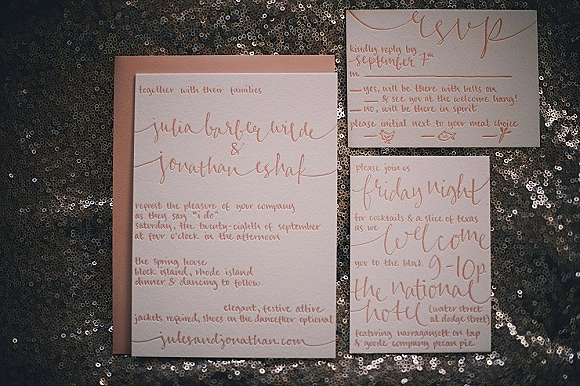 together with their families
julia barber wilde
&
jonathan eshak
request the pleasure of your company
as they say "i do"
saturday, the twenty-eighth of september
at four o'clock in the afternoon
the spring house
block island, rhode island
dinner & dancing to follow
elegant, festive attire
jackets required, shoes on the dancefloor optional
julesandjonathan.com
rsvp
kindly reply by
september 7th
m
yes, will be there with bells on
& see you at the welcome hang!
no, will be there in spirit
please initial next to your meal choice
please join us
friday night
for cocktails & a slice of texas
as we welcome
you to the block 9-10p
the national
hotel (water street
at dodge street)
featuring narragansett on tap
& goode company pecan pie